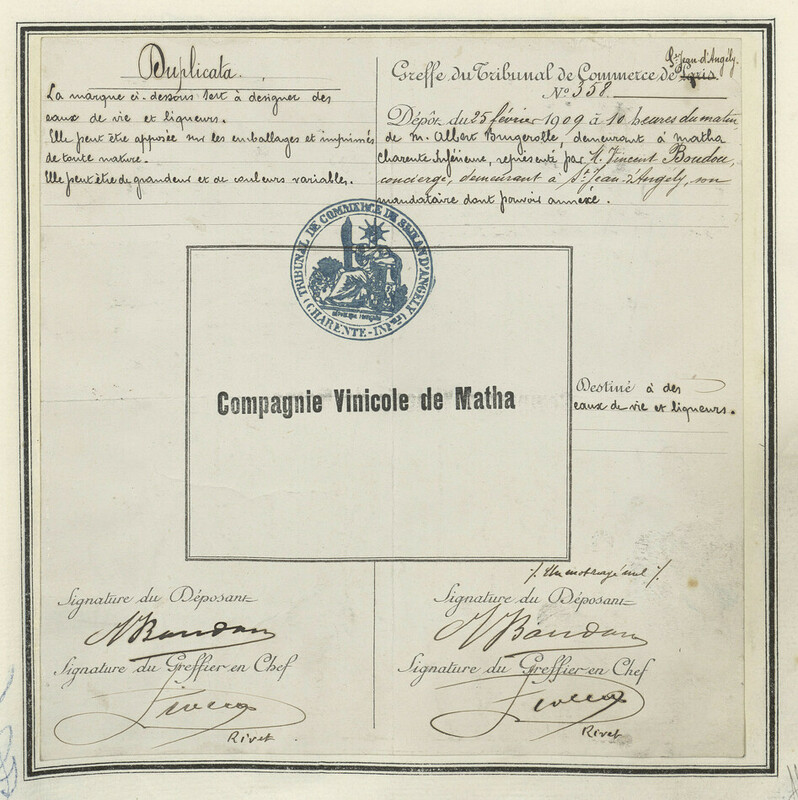 Duplicata.
La marque ci-dessous sert à désigner des
eaux de vie et liqueurs.
Elle peut être apposée sur les emballages et imprimés
de toute nature.
Elle peut être de grandeur et de couleurs variables.
St Jean-d'Angély.
Greffe du Tribunal de Commerce de Paris
No 358.
Dépôt du 25 février 1909 à 10 heures du matin
de M. Albert Brugerolle, demeurant à Matha
Charente Inférieure, représenté par M. Vincent Boudou,
concierge, demeurant à St Jean-d'Angély, son
mandataire dont pouvoir annexé.
TRIBUNAL DE COMMERCE DE St JEAN D'ANGELY
(CHARENTE-INFre)
Compagnie Vinicole de Matha
Destiné à des
eaux de vie et liqueurs.
Signature du Déposant
Signature du Greffier en Chef
Rivet
Un mot rayé nul
Signature du Déposant
Signature du Greffier en Chef
Rivet